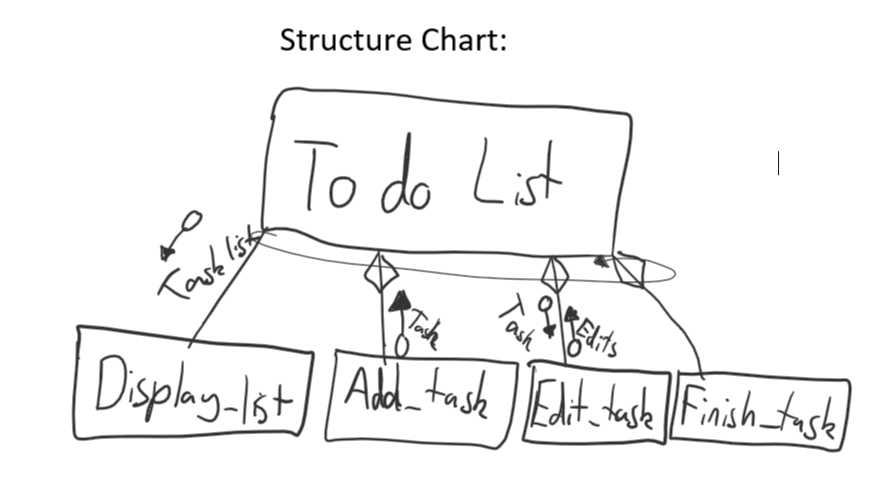 Structure Chart:
To do List
Task list
Task
Task
Edits
Display_list
Add_task
Edit_task
Finish_task